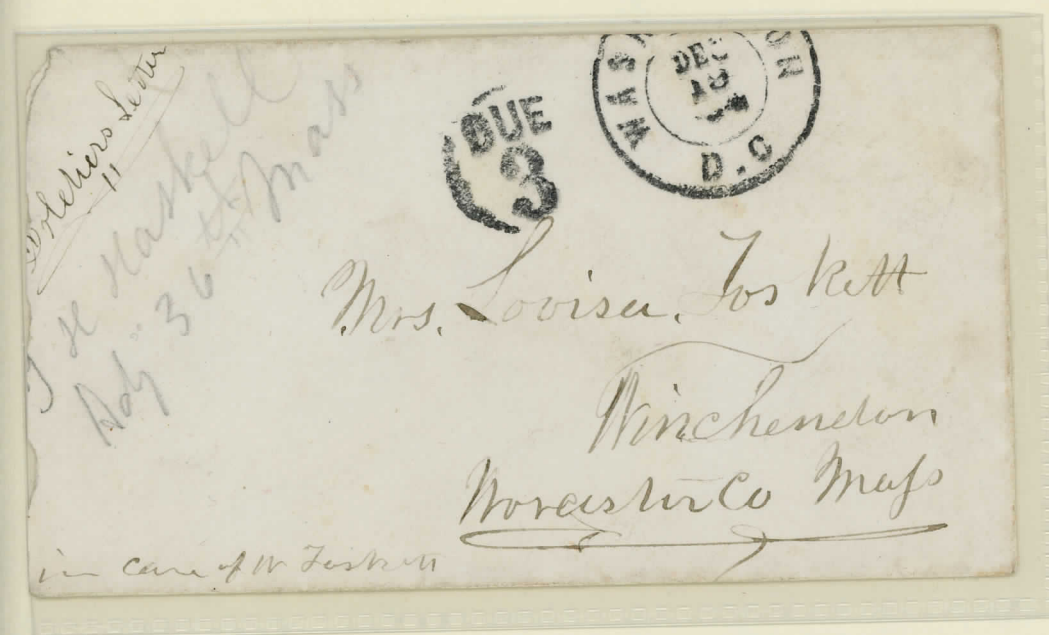 Soldiers Letter
"
J H Haskell
Adj 36th Mass
DUE
3
WASHINGTON
DEC
18
D.C
Mrs. Lovisa Foskett
Winchendon
Worcister Co Mass
in care of W Foskett